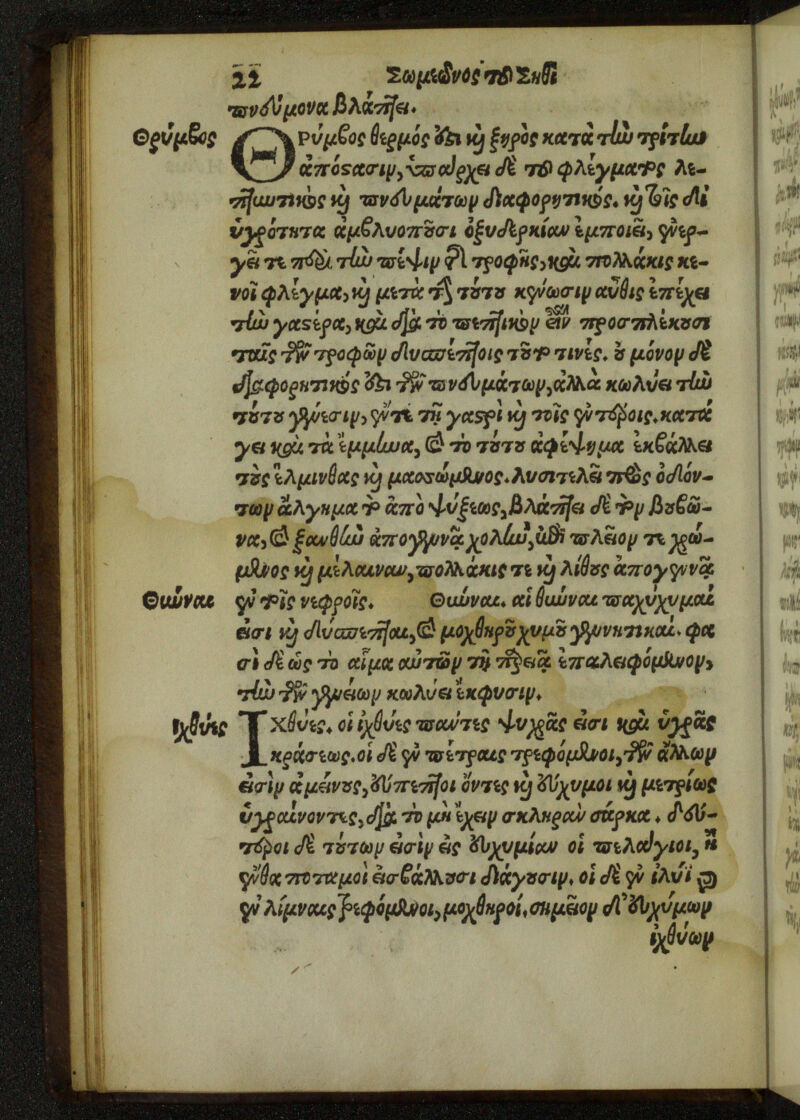 22 Συμεῶνος τοῦ Σηθὶ
πνεύμονα βλάπτει.
Θρύμβος
ΘΡύμβος θερμός ἐστι καὶ ξηρὸς κατὰ τὴν τρίτην
ἀπόστασιν, ὑπάρχει δὲ τοῦ φλέγματος λε-
πτυντικὸς καὶ πνευμάτων διαφορητικός. καὶ τοῖς δι
ὑγρότητα ἀμβλυοποῦσι ὀξυδερκίαν ἐμποιεῖ, ἐνερ-
γεῖ τε πρὸς τὴν πέψιν τῆς τροφῆς, καὶ πολλάκις κε-
νοῖ φλέγμα, καὶ μετὰ τὴν τούτου κένωσιν αὖθις ἐπέχει
τὴν γαστέρα, καὶ διὰ τὸ πεπτικὸν εἶναι προσπλέκουσι
ταῖς τῶν τροφῶν δυσπέπτοις τοῦτό τινες. οὐ μόνον δὲ
διαφορητικός ἐστι τῶν πνευμάτων, ἀλλὰ κωλύει τὴν
τούτου γένεσιν, ἔν τε τῇ γαστρὶ καὶ τοῖς ἐντέροις. κατά
γει καὶ τὰ ἔμμηνα, καὶ τὸ τούτου ἀφέψημα ἐκβάλλει
τὰς ἕλμινθας καὶ μασσώμενος. λυσιτελεῖ πρὸς ὀδόν-
των ἄλγημα τὸ ἀπὸ ψύξεως, βλάπτει δὲ τὸν βουβῶ-
να, καὶ ξανθὴν ἀπογεννᾷ χολὴν, ἐπὶ πλεῖον τε χρώ-
μενος καὶ μέλαιναν, πολλάκις τε καὶ λίθους ἀπογεννᾷ
Θυῖναι
ἐν τοῖς νεφροῖς. Θυῖναι. αἱ θυῖναι παχύχυμαι
εἰσι καὶ δύσπεπτοι, καὶ μοχθηροῦ χυμοῦ γεννητικαί. φα
σὶ δὲ ὡς τὸ αἷμα αὐτῶν τῇ τριχὶ ἐπαλειφόμενον,
τὴν τῶν γενείων κωλύει ἔκφυσιν.
Ἰχθύες
ΙΧθύες. οἱ ἰχθύες πάντες ψυχρᾶς εἰσι καὶ ὑγρᾶς
κράσεως. οἱ δὲ ἐν πέτραις τρεφόμενοι, τῶν ἄλλων
εἰσὶν ἀμείνους, εὔπεπτοι ὄντες καὶ εὔχυμοι καὶ μετρίως
ὑγραίνοντες, διὰ τὸ μὴ ἔχειν σκληρὰν σάρκα. δεύ-
τεροι δὲ τούτων εἰσὶν εἰς εὐχυμίαν οἱ πελάγιοι, ἢ
ἔνθα ποταμοὶ εἰσβάλλουσι διάγουσιν. οἱ δὲ ἐν ἰλύϊ καὶ
ἐν λίμναις τρεφόμενοι, μοχθηροί. σημεῖον δ' εὐχύμων
ἰχθύων